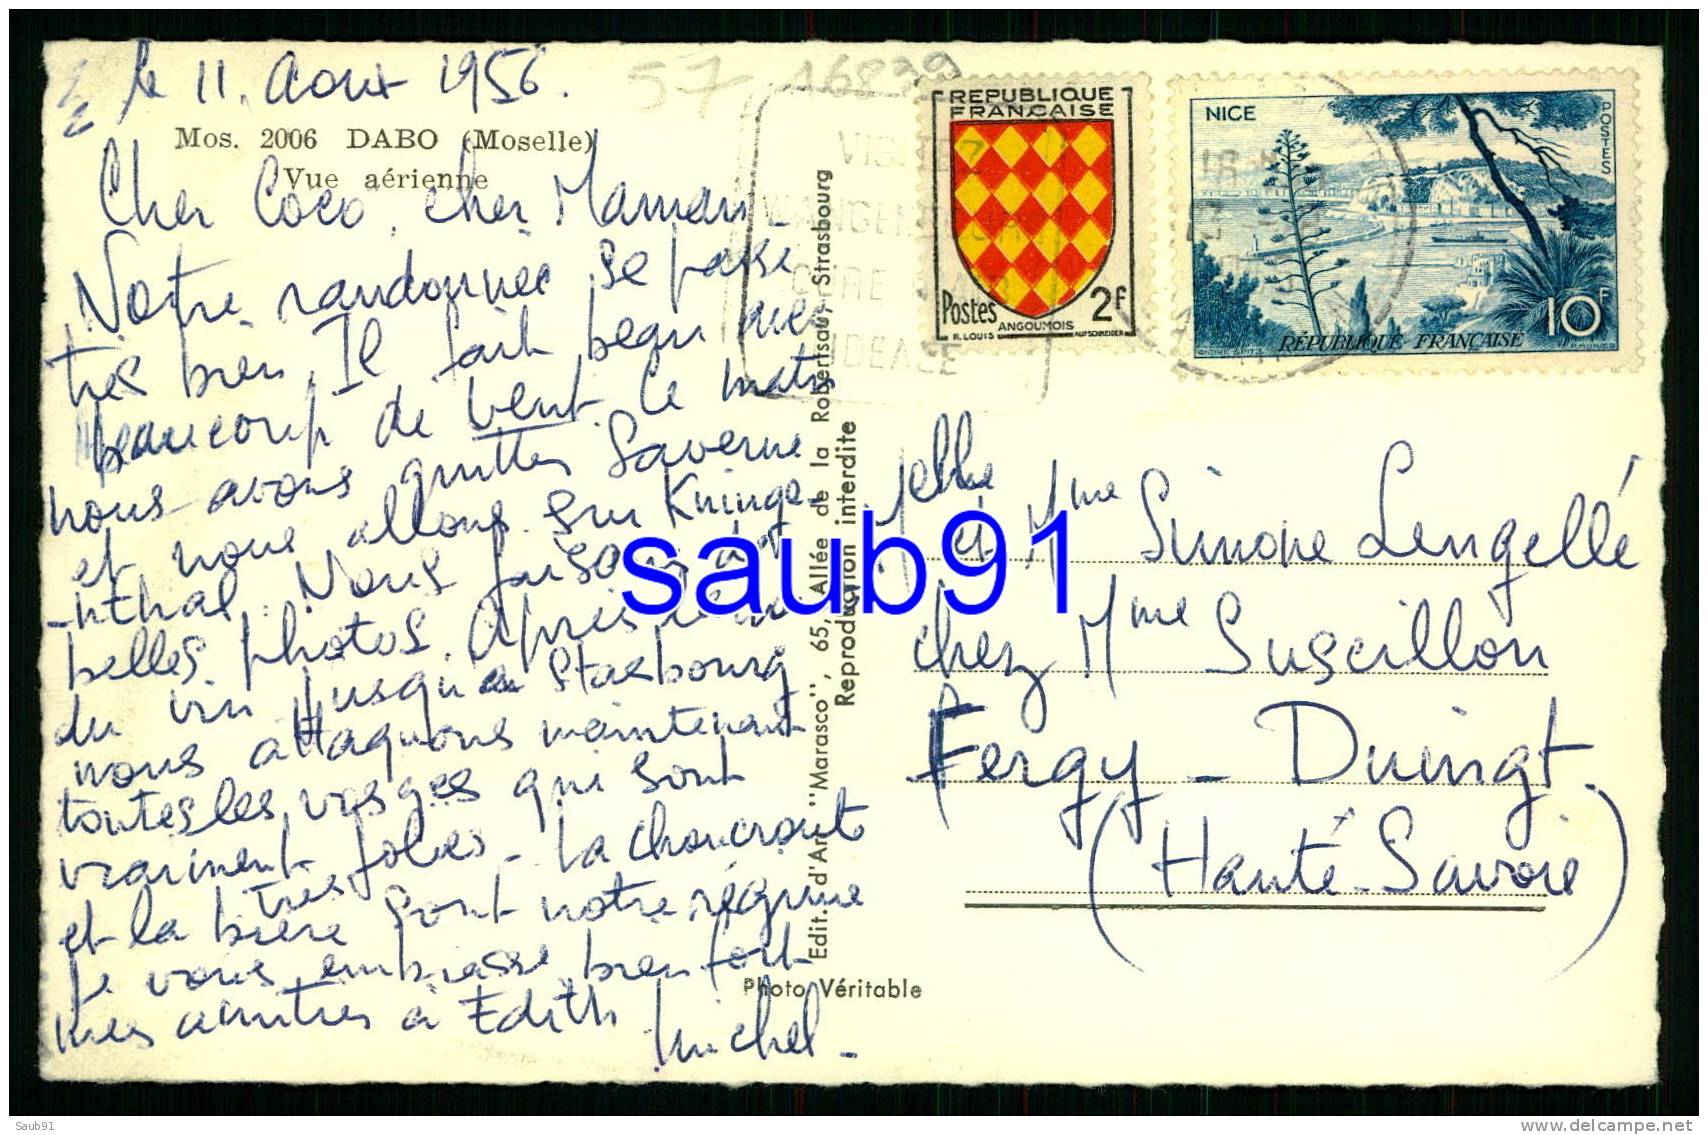 le 11. Aout 1956.
57
16829
Mos. 2006 DABO (Moselle)
Vue aérienne
Cher Coco, cher Maman
Notre randonnée se passe
très bien. Il fait beau mes
beaucoup de vent. Ce matin
nous avons quittés Saverne
et nous allons sur Kninge
-nthal. Nous faisons de
belles photos. Après
du vin jusqu'à Strasbourg
nous attaquons maintenant
toutes les vosges qui sont
vraiment très jolies - La choucroute
et la bière sont notre régime
Je vous embrasse bien fort
mes amitiés à Edith
Michel -
Edit. d'Art "Marasco", 65, Allée de la Robertsau, Strasbourg
Reproduction interdite
Photo Véritable
VISITEZ
WANGENBOURG
CURE D'AIR
IDEALE
REPUBLIQUE
FRANÇAISE
Postes 2F
ANGOUMOIS
R. LOUIS AUFSCHNEIDER
NICE
POSTES
10F
RÉPUBLIQUE FRANÇAISE
Melle
et Mme Simone Lengellé
chez Mme Suscillon
Fergy - Duingt.
(Haute-Savoie)
saub91
Saub91
delcampe.net